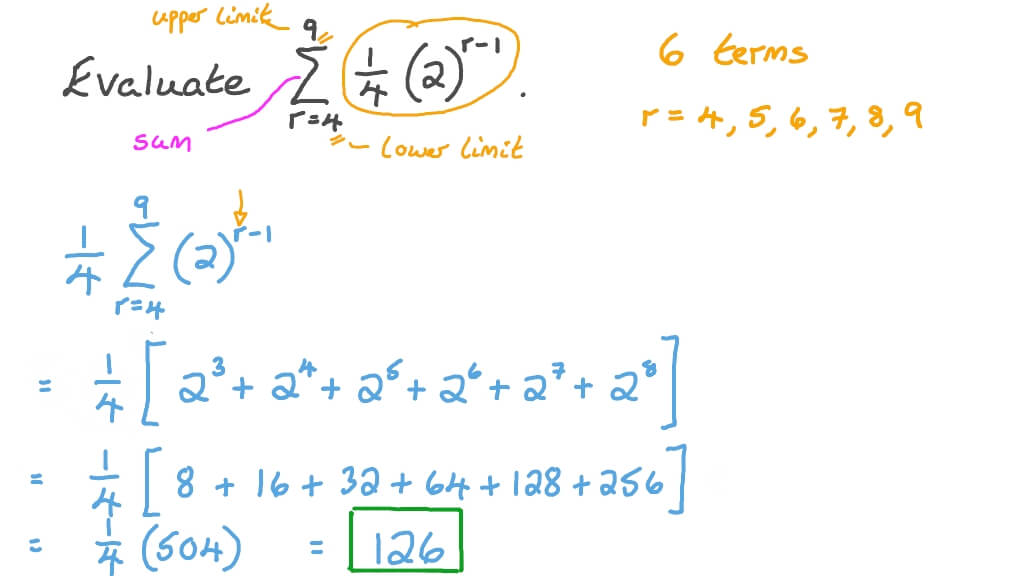 upper limit
Evaluate \sum_{r=4}^{9} \frac{1}{4} (2)^{r-1} .
sum
lower limit
6 terms
r = 4, 5, 6, 7, 8, 9
\frac{1}{4} \sum_{r=4}^{9} (2)^{r-1}
= \frac{1}{4} [ 2^3 + 2^4 + 2^5 + 2^6 + 2^7 + 2^8 ]
= \frac{1}{4} [ 8 + 16 + 32 + 64 + 128 + 256 ]
= \frac{1}{4} (504) = 126